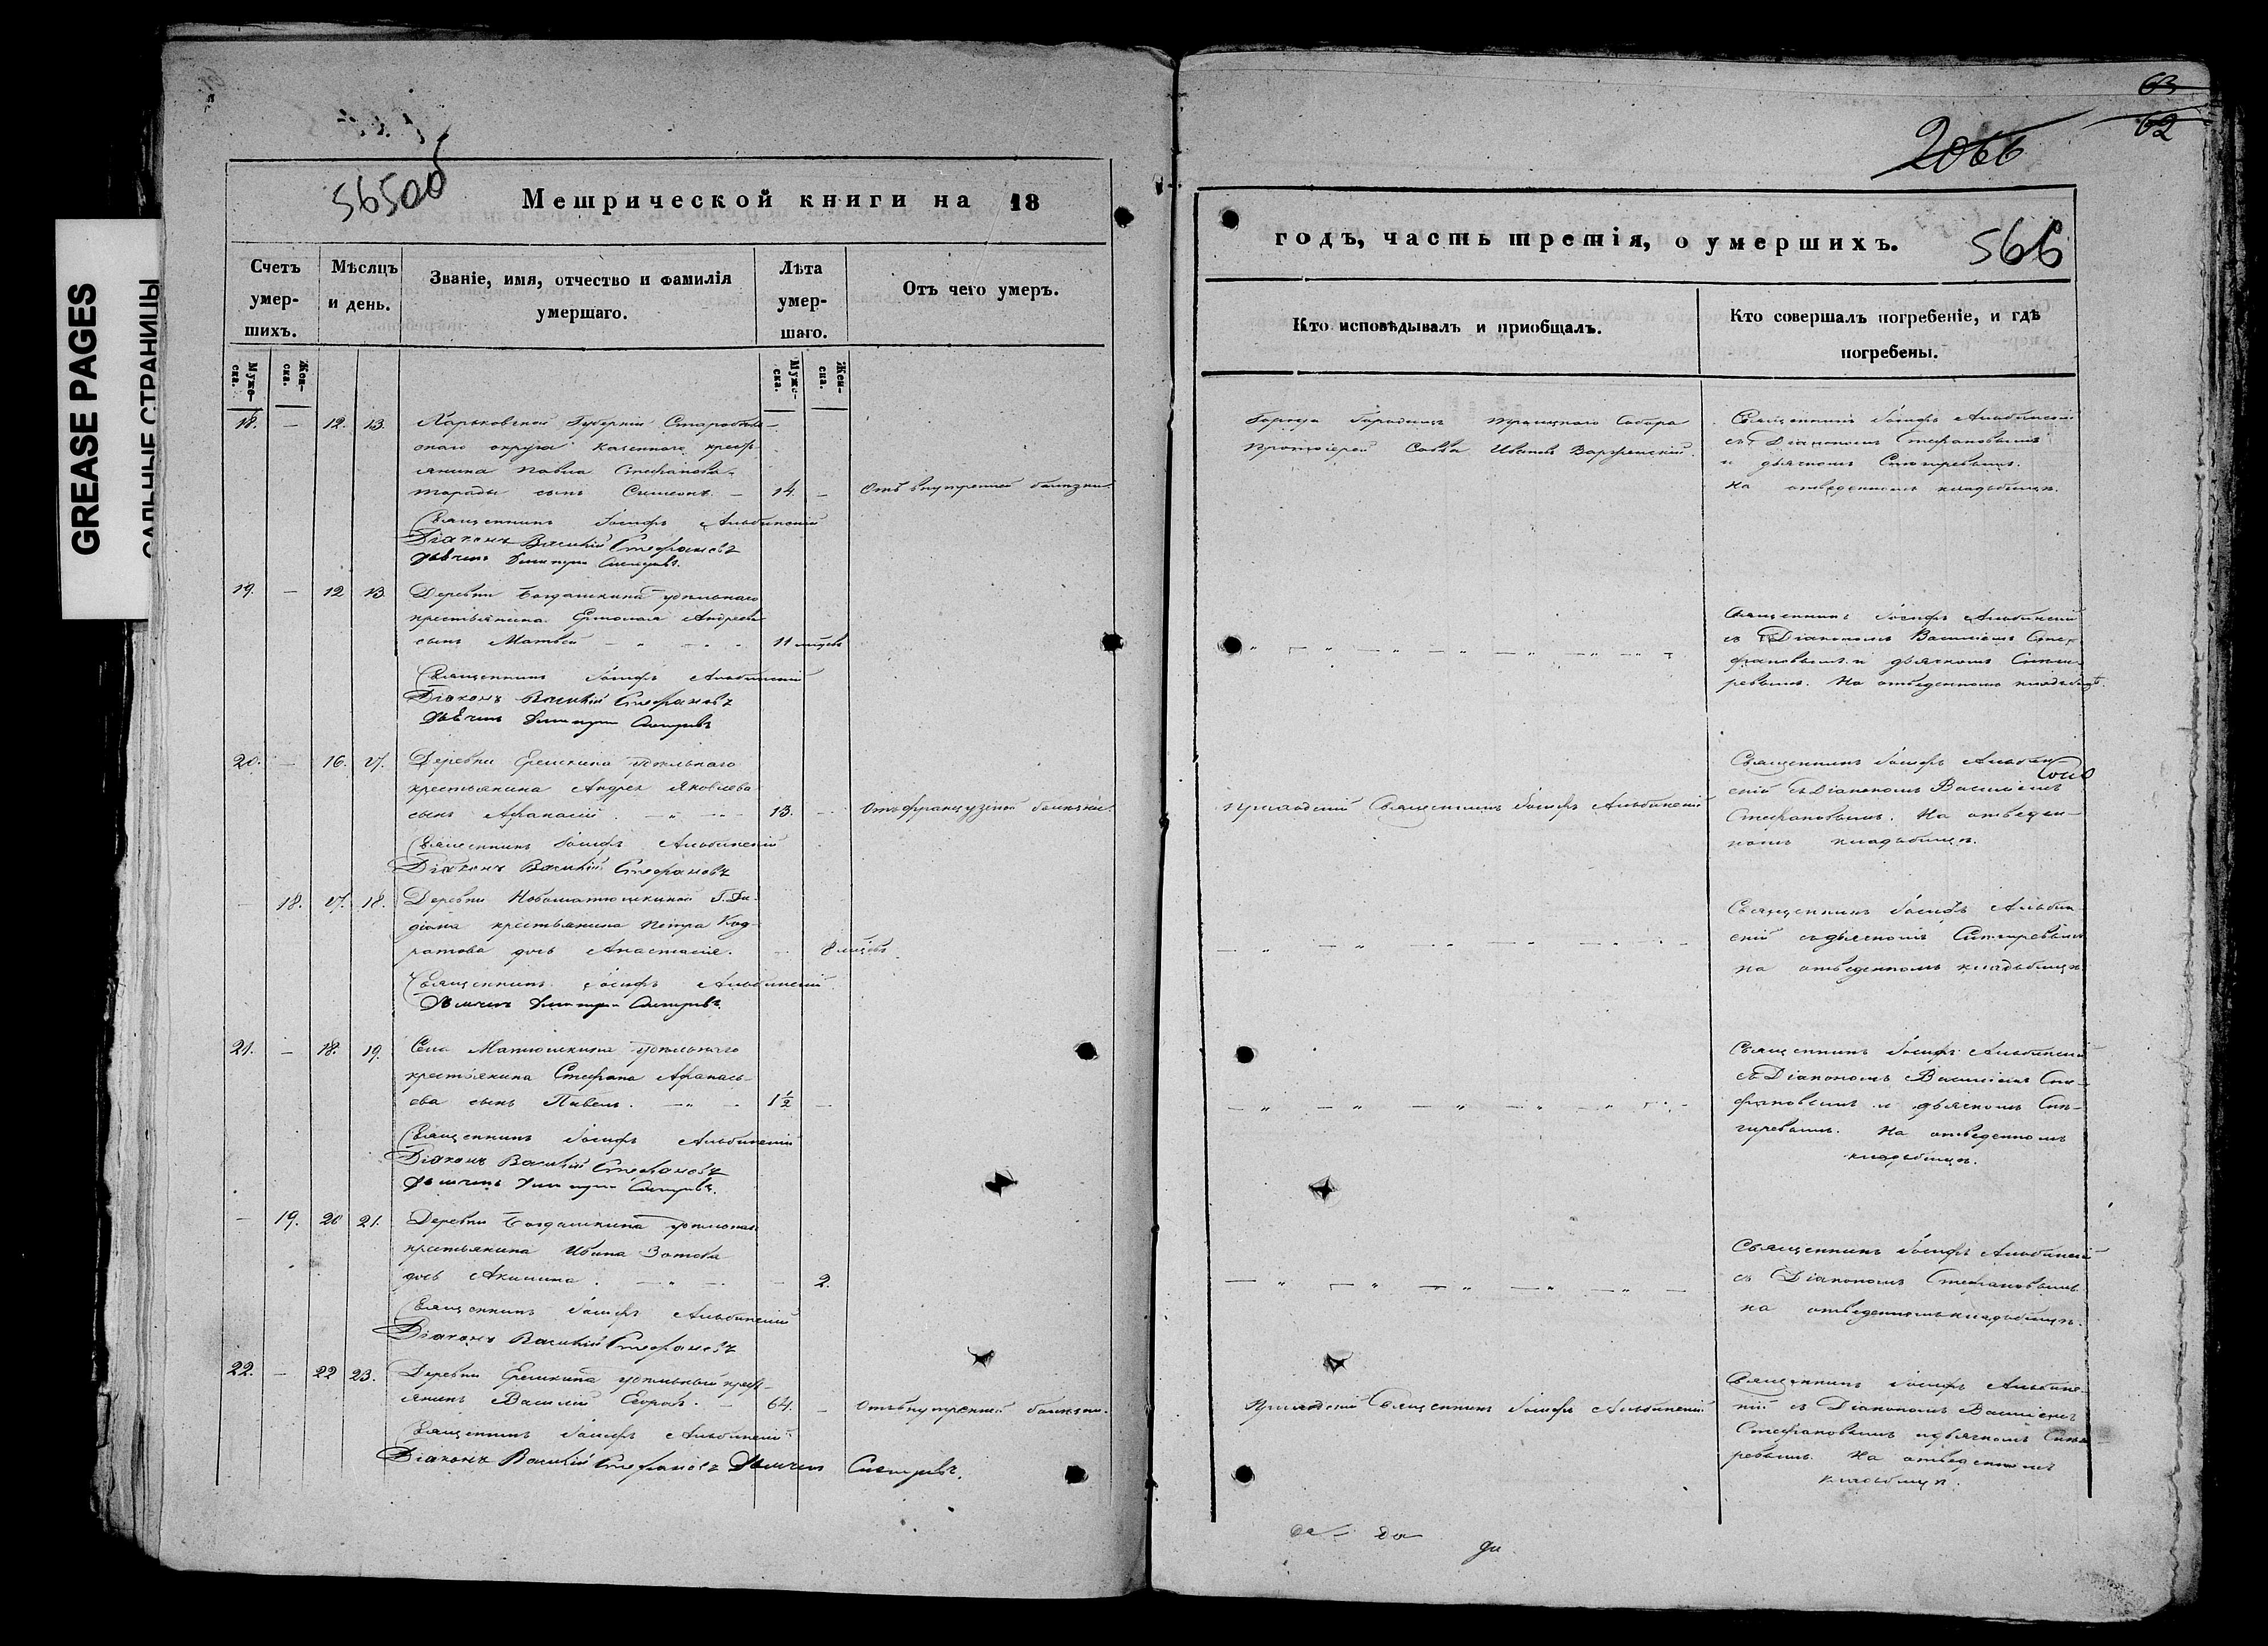 GREASE PAGES
САЛЬНЫЕ СТРАНИЦЫ
565об
Метрической книги на 18
Счетъ умер-шихъ.
Мѣсяцъ и день.
Званіе, имя, отчество и фамилія умершаго.
Лѣта умер-шаго.
Отъ чего умеръ.
Муже-ска.
Жен-ска.
Муже-ска.
Жен-ска.
18. — 12. 13. Харьковской Губерніи Старобѣль-
скаго округа казеннаго кресть-
янина Павла Стефанова
сынъ Симеонъ. — 14. — Отъ внутренней болѣзни.
Священникъ Іосифъ Альбинскій
Діаконъ Василій Стефановъ
Дьячекъ Димитрій Снегиревъ.
19. — 12 13. Деревни Богдашкина удѣльнаго
крестьянина Ермолая Андреева
сынъ Матвей — „ — 11 мѣсцевъ
Священникъ Іосифъ Альбинскій
Діаконъ Василій Стефановъ
Дьячекъ Димитрій Снегиревъ
20. — 16. 17. Деревни Еремкина удѣльнаго
крестьянина Андрея Яковлева
сынъ Афанасій. — „ — 13. — Отъ французской болѣзни.
Священникъ Іосифъ Альбинскій
Діаконъ Василій Стефановъ
— 18. 17. 18. Деревни Новоматюшкиной Г.
крестьянина Петра Код-
ратова дочь Анастасія. — 8 мѣсцевъ
Священникъ Іосифъ Альбинскій
Дьячекъ Димитрій Снегиревъ.
21. — 18. 19. Села Матюшкина удѣльнаго
крестьянина Стефана Афанась-
ева сынъ Павелъ. — „ — 1½ —
Священникъ Іосифъ Альбинскій
Діаконъ Василій Стефановъ
Дьячекъ Димитрій Снегиревъ.
— 19. 20 21. Деревни Богдашкина удѣльнаго
крестьянина Ивана Зотова
дочь Акилина. — „ — — 2.
Священникъ Іосифъ Альбинскій
Діаконъ Василій Стефановъ
22. — 22 23. Деревни Еремкина удѣльный кресть-
янинъ Василій Егоровъ. — 64. — Отъ внутренней болѣзни.
Священникъ Іосифъ Альбинскій
Діаконъ Василій Стефановъ Дьячекъ Снегиревъ.
63
62
2066
годъ, часть третія, о умершихъ.
566
Кто исповѣдывалъ и приобщалъ.
Кто совершалъ погребеніе, и гдѣ погребены.
Города Троицкаго Собора
Протоіерей Савва Ивановъ
Священникъ Іосифъ Альбинскій
съ Діакономъ Стефановымъ
и дьячкомъ Снегиревымъ.
На отведенномъ кладбищѣ.
Священникъ Іосифъ Альбинскій
съ Діакономъ Василіемъ Сте-
фановымъ и дьячкомъ Снеги-
ревымъ. На отведенномъ кладбищѣ.
Приходскій Священникъ Іосифъ Альбинскій
Священникъ Іосифъ Альбин-
скій съ Діакономъ Василіемъ
Стефановымъ. На отведен-
номъ кладбищѣ.
Священникъ Іосифъ Альбин-
скій съ дьячкомъ Снегиревымъ
на отведенномъ кладбищѣ.
Священникъ Іосифъ Альбинскій
съ Діакономъ Василіемъ Сте-
фановымъ и дьячкомъ Сне-
гиревымъ. На отведенномъ
кладбищѣ.
Священникъ Іосифъ Альбинскій
съ Діакономъ Стефановымъ
на отведенномъ кладбищѣ.
Приходскій Священникъ Іосифъ Альбинскій
Священникъ Іосифъ Альбинс-
кій съ Діакономъ Василіемъ
Стефановымъ и дьячкомъ Снеги-
ревымъ. На отведенномъ
кладбищѣ.